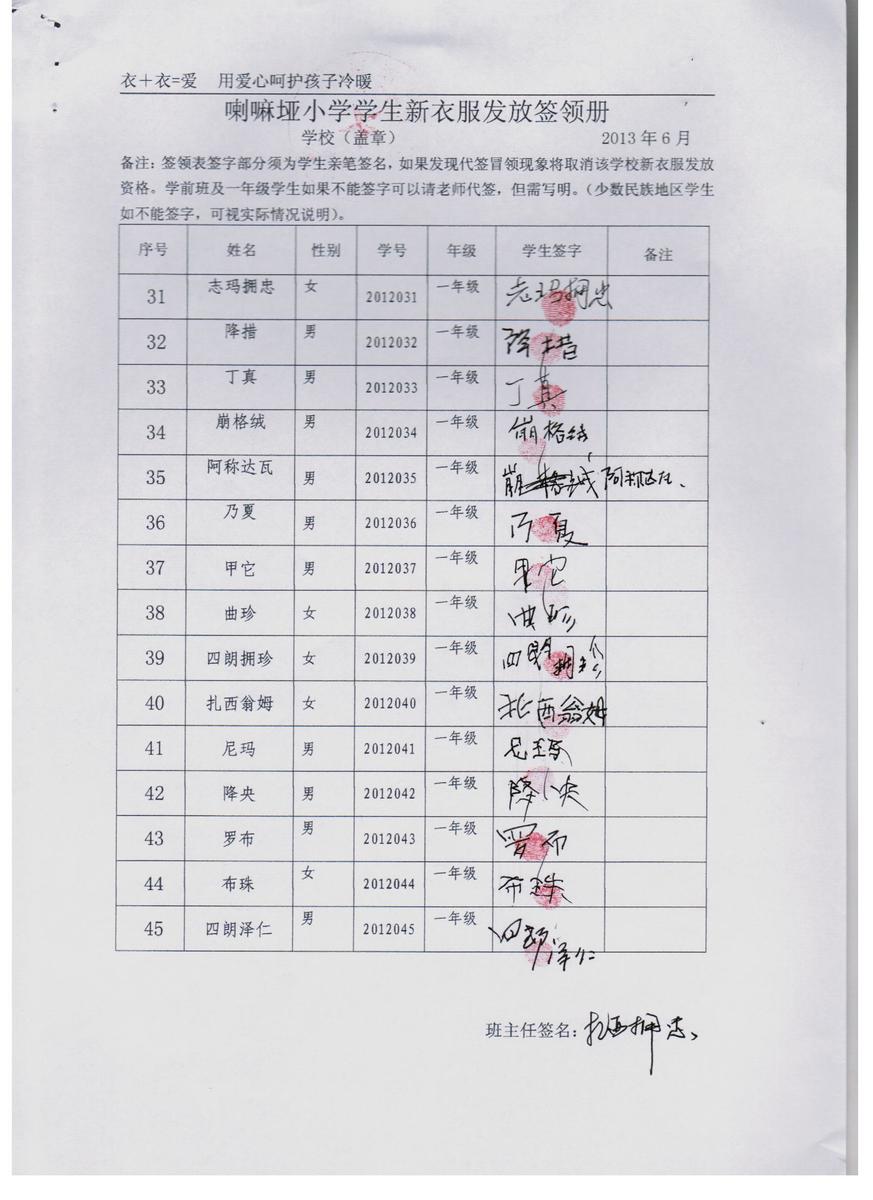 衣＋衣=爱 用爱心呵护孩子冷暖
喇嘛垭小学学生新衣服发放签领册
学校（盖章） 2013 年 6 月
备注：签领表签字部分须为学生亲笔签名，如果发现代签冒领现象将取消该学校新衣服发放
资格。学前班及一年级学生如果不能签字可以请老师代签，但需写明。（少数民族地区学生
如不能签字，可视实际情况说明）。
序号 姓名 性别 学号 年级 学生签字 备注
31 志玛拥忠 女 2012031 一年级 志玛拥忠
32 降措 男 2012032 一年级 降措
33 丁真 男 2012033 一年级 丁真
34 崩格绒 男 2012034 一年级 崩格绒
35 阿称达瓦 男 2012035 一年级 崩格绒 阿称达瓦、
36 乃夏 男 2012036 一年级 乃夏
37 甲它 男 2012037 一年级 甲它
38 曲珍 女 2012038 一年级 曲珍
39 四朗拥珍 女 2012039 一年级 四朗拥珍
40 扎西翁姆 女 2012040 一年级 扎西翁姆
41 尼玛 男 2012041 一年级 尼玛
42 降央 男 2012042 一年级 降央
43 罗布 男 2012043 一年级 罗布
44 布珠 女 2012044 一年级 布珠
45 四朗泽仁 男 2012045 一年级 四朗泽仁
班主任签名：扎西拥忠、